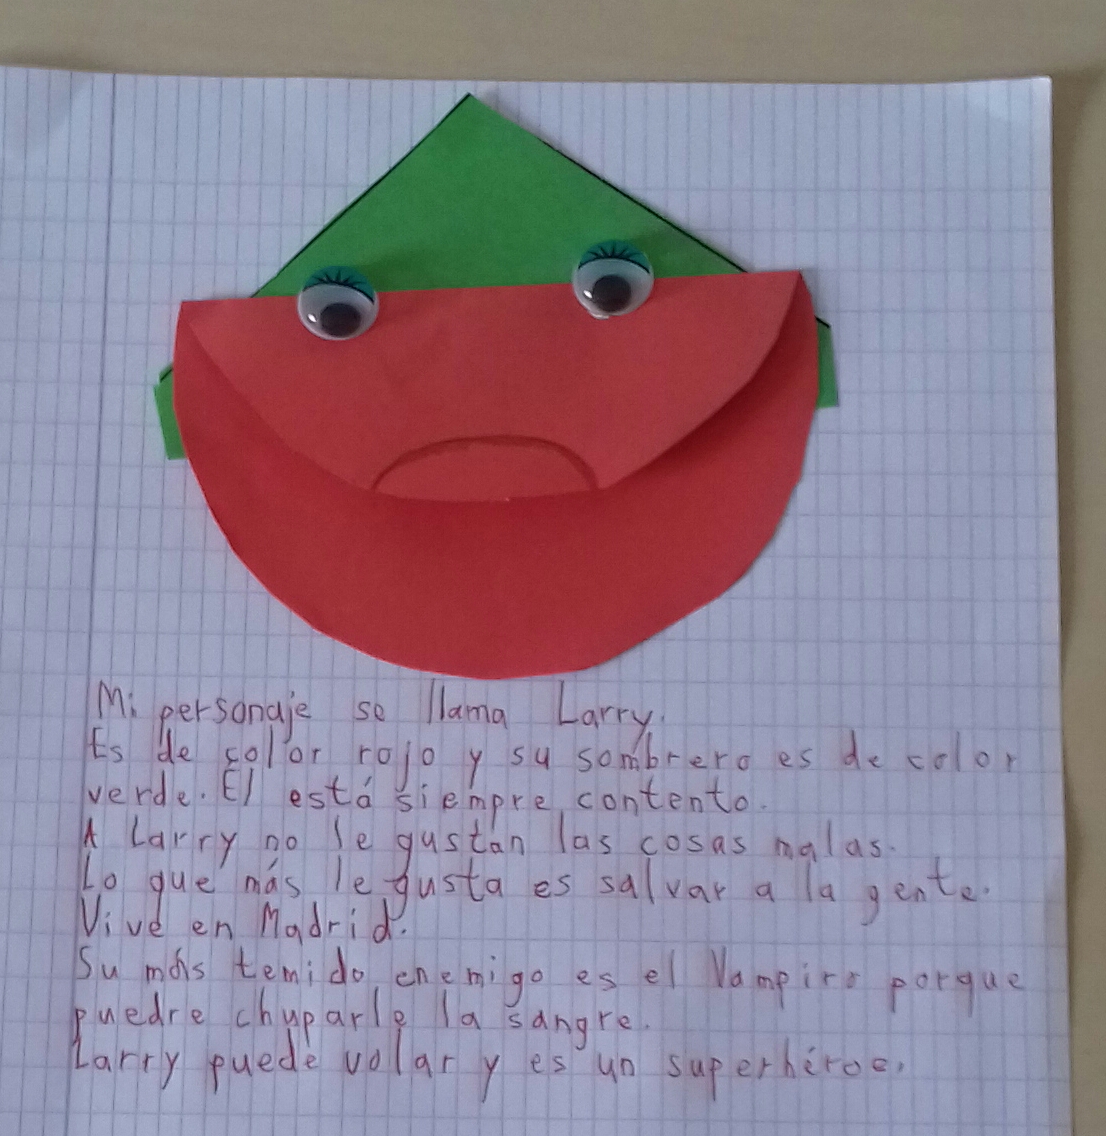 Mi personaje se llama Larry.
Es de color rojo y su sombrero es de color
verde. El está siempre contento.
A Larry no le gustan las cosas malas.
Lo que más le gusta es salvar a la gente.
Vive en Madrid.
Su más temido enemigo es el Vampiro porque
puedre chuparle la sangre.
Larry puede volar y es un superhéroe.